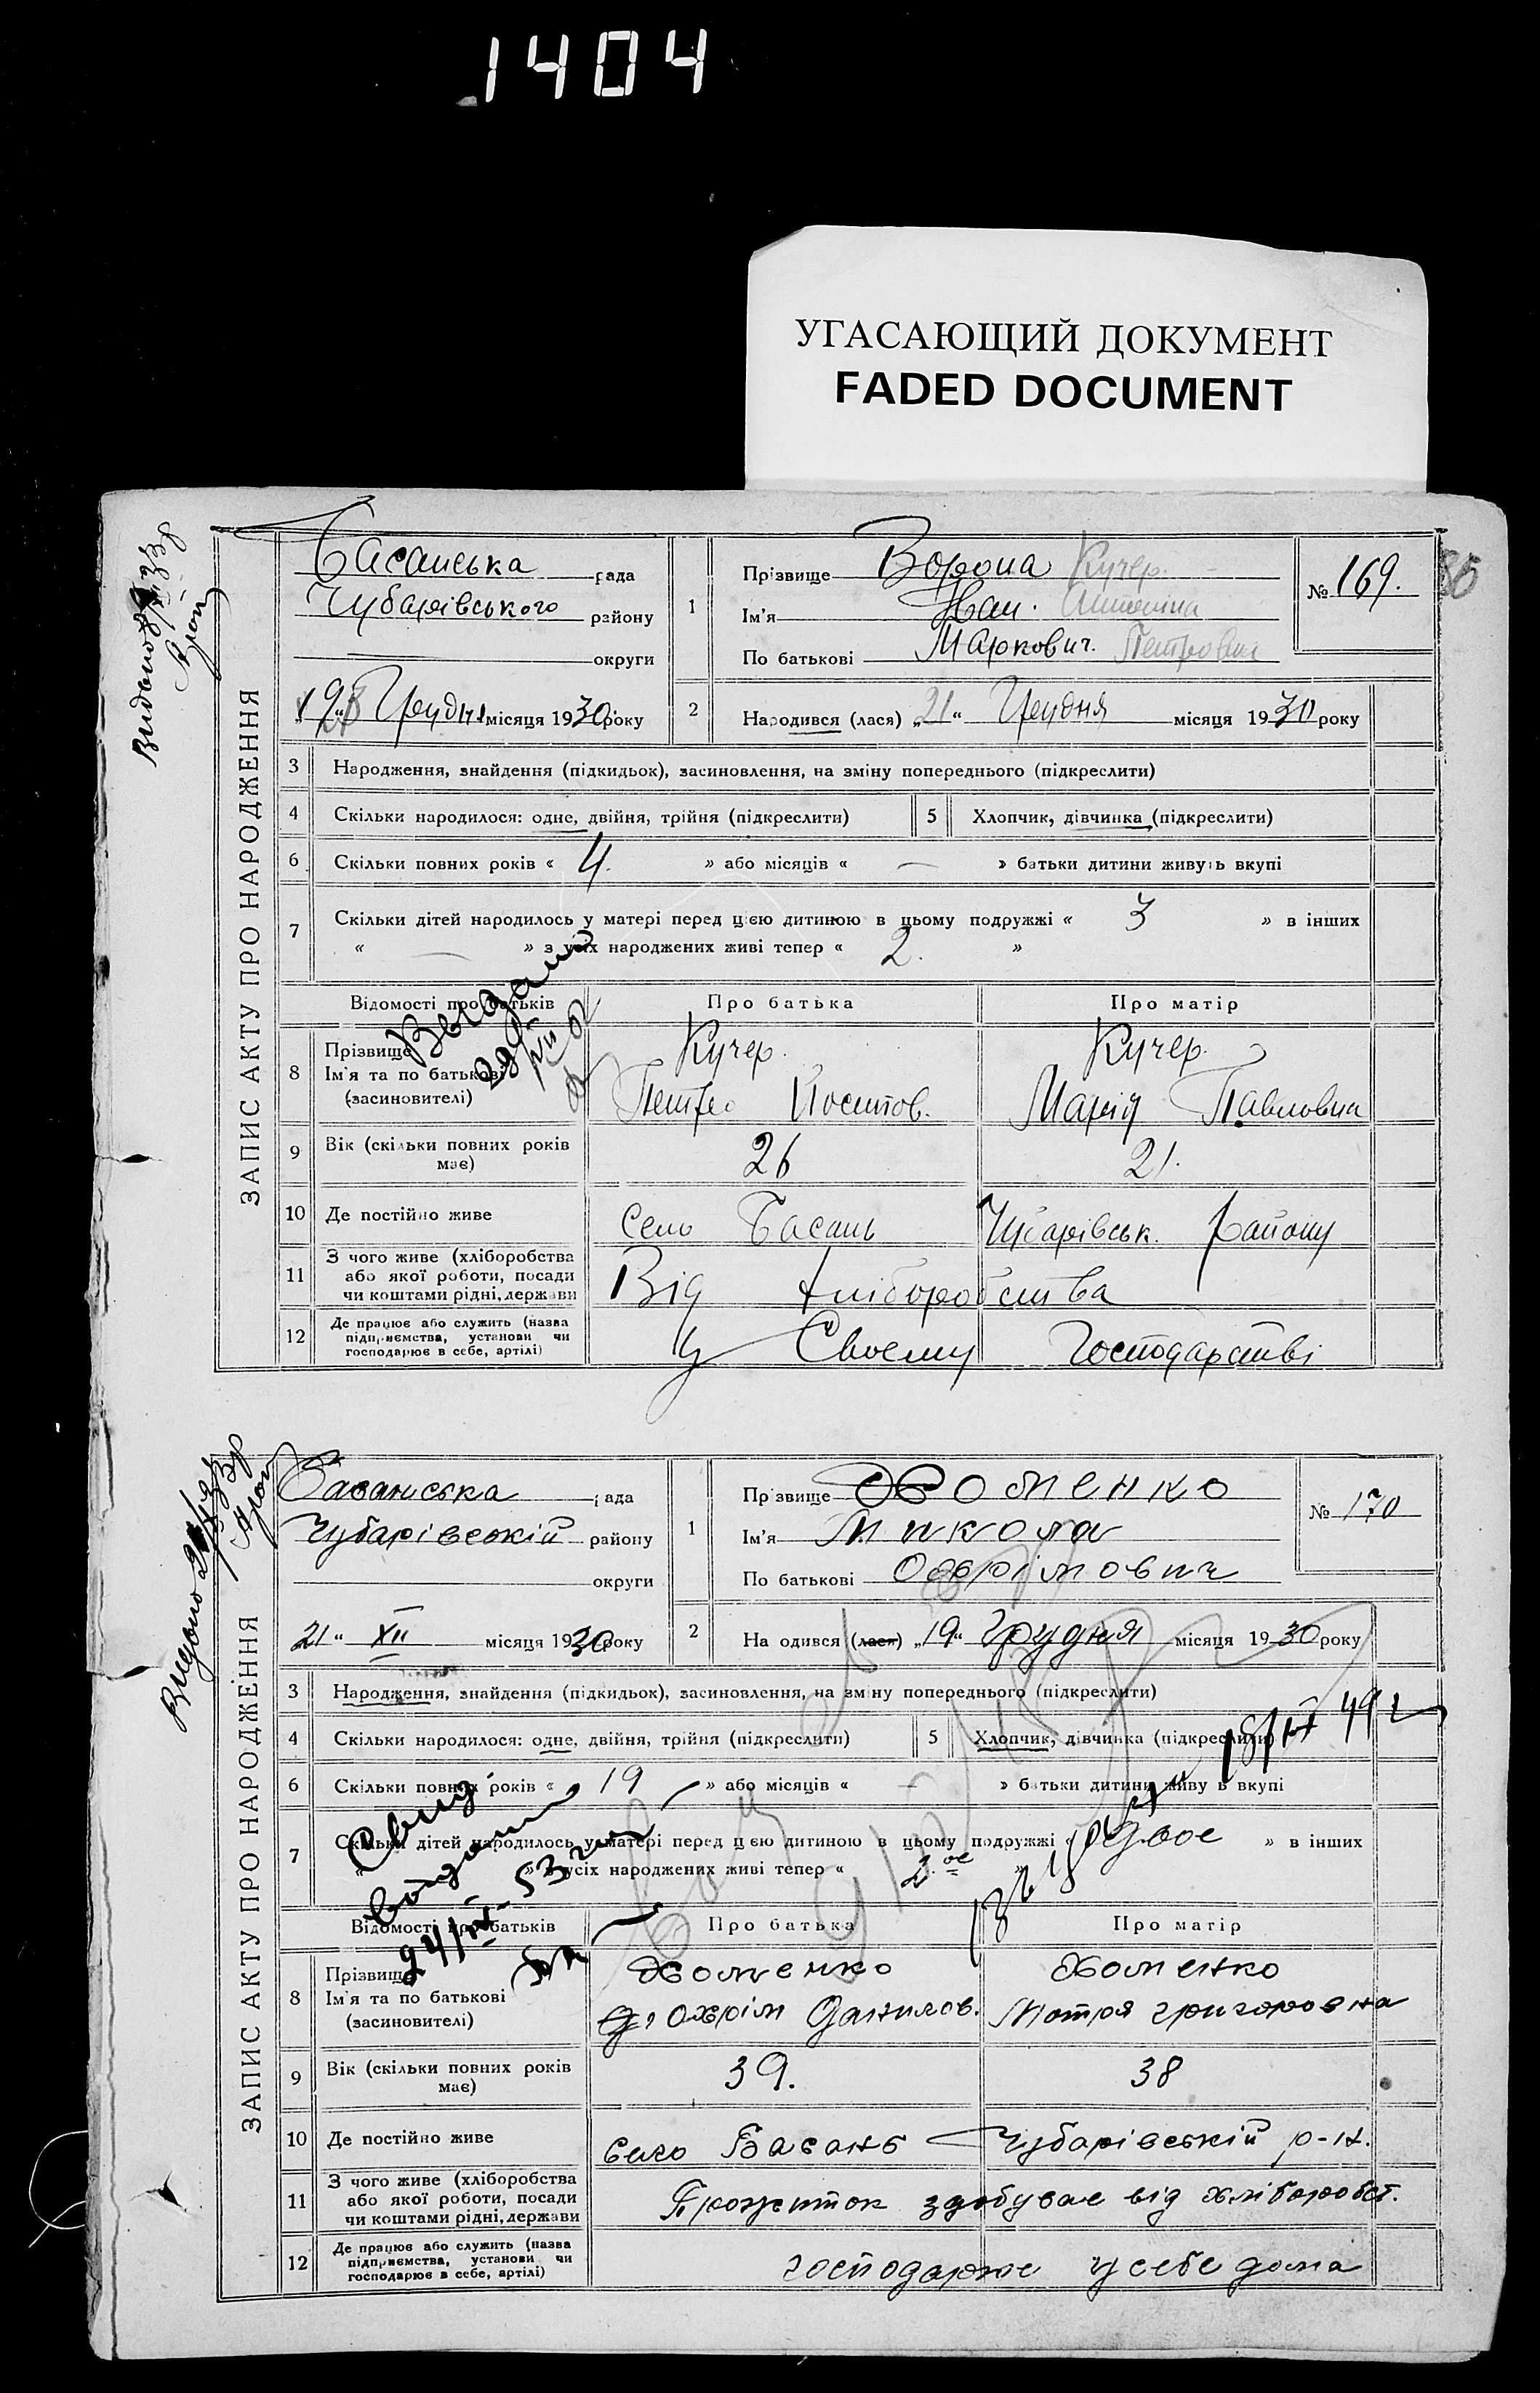 1404
УГАСАЮЩИЙ ДОКУМЕНТ
FADED DOCUMENT
ЗАПИС АКТУ ПРО НАРОДЖЕННЯ
Басанська рада
Чубарівського району
округи
Грудня місяця 1930 року
1
Прізвище Ворона Кучер.
Ім'я Иван. Антоніна
По батькові Маркович. Петровна
№ 169.
2
Народився (лася) „21“ Грудня місяця 1930 року
3 Народження, знайдення (підкидьок), засиновлення, на зміну попереднього (підкреслити)
4 Скільки народилося: одне, двійня, трійня (підкреслити)
5 Хлопчик, дівчинка (підкреслити)
6 Скільки повних років « 4. » або місяців « — » батьки дитини живуть вкупі
7 Скільки дітей народилось у матері перед цією дитиною в цьому подружжі « 3 » в інших
« — » з усіх народжених живі тепер « 2. »
Відомості про батьків Про батька Про матір
8 Прізвище
Ім'я та по батькові
(засиновителі)
Кучер.
Петро Йосипов.
Кучер.
Марія Павловна
9 Вік (скільки повних років
має)
26
21.
10 Де постійно живе село Басань Чубарівськ. району
11 З чого живе (хліборобства
або якої роботи, посади
чи коштами рідні, держави
Від хліборобства
12 Де працює або служить (назва
підприємства, установи чи
господарює в себе, артілі)
У Своєму Господарстві
Видано
Видано
ЗАПИС АКТУ ПРО НАРОДЖЕННЯ
Басанська рада
Чубарівській району
округи
21“ XII місяця 1930 року
1
Прізвище Хоменко
Ім'я Микола
По батькові Охрімович
№ 170
2
На одився (лася) „19“ Грудня місяця 1930 року
3 Народження, знайдення (підкидьок), засиновлення, на зміну попереднього (підкреслити)
4 Скільки народилося: одне, двійня, трійня (підкреслити)
5 Хлопчик, дівчинка (підкреслити)
6 Скільки повних років « 19 » або місяців « — » батьки дитини живу ь вкупі
7 Скільки дітей народилось у матері перед цією дитиною в цьому подружжі « » в інших
» з усіх народжених живі тепер « 2.ое »
Відомості про батьків Про батька Про матір
8 Прізвище
Ім'я та по батькові
(засиновителі)
Хоменко
Охрім Данилов.
Хоменко
Мотря Григоровна
9 Вік (скільки повних років
має)
39.
38
10 Де постійно живе село Басань Чубарівській р-н.
11 З чого живе (хліборобства
або якої роботи, посади
чи коштами рідні, держави
Прожиток здобуває від хліборобст.
12 Де працює або служить (назва
підприємства, установи чи
господарює в себе, артілі)
господарює у себе дома